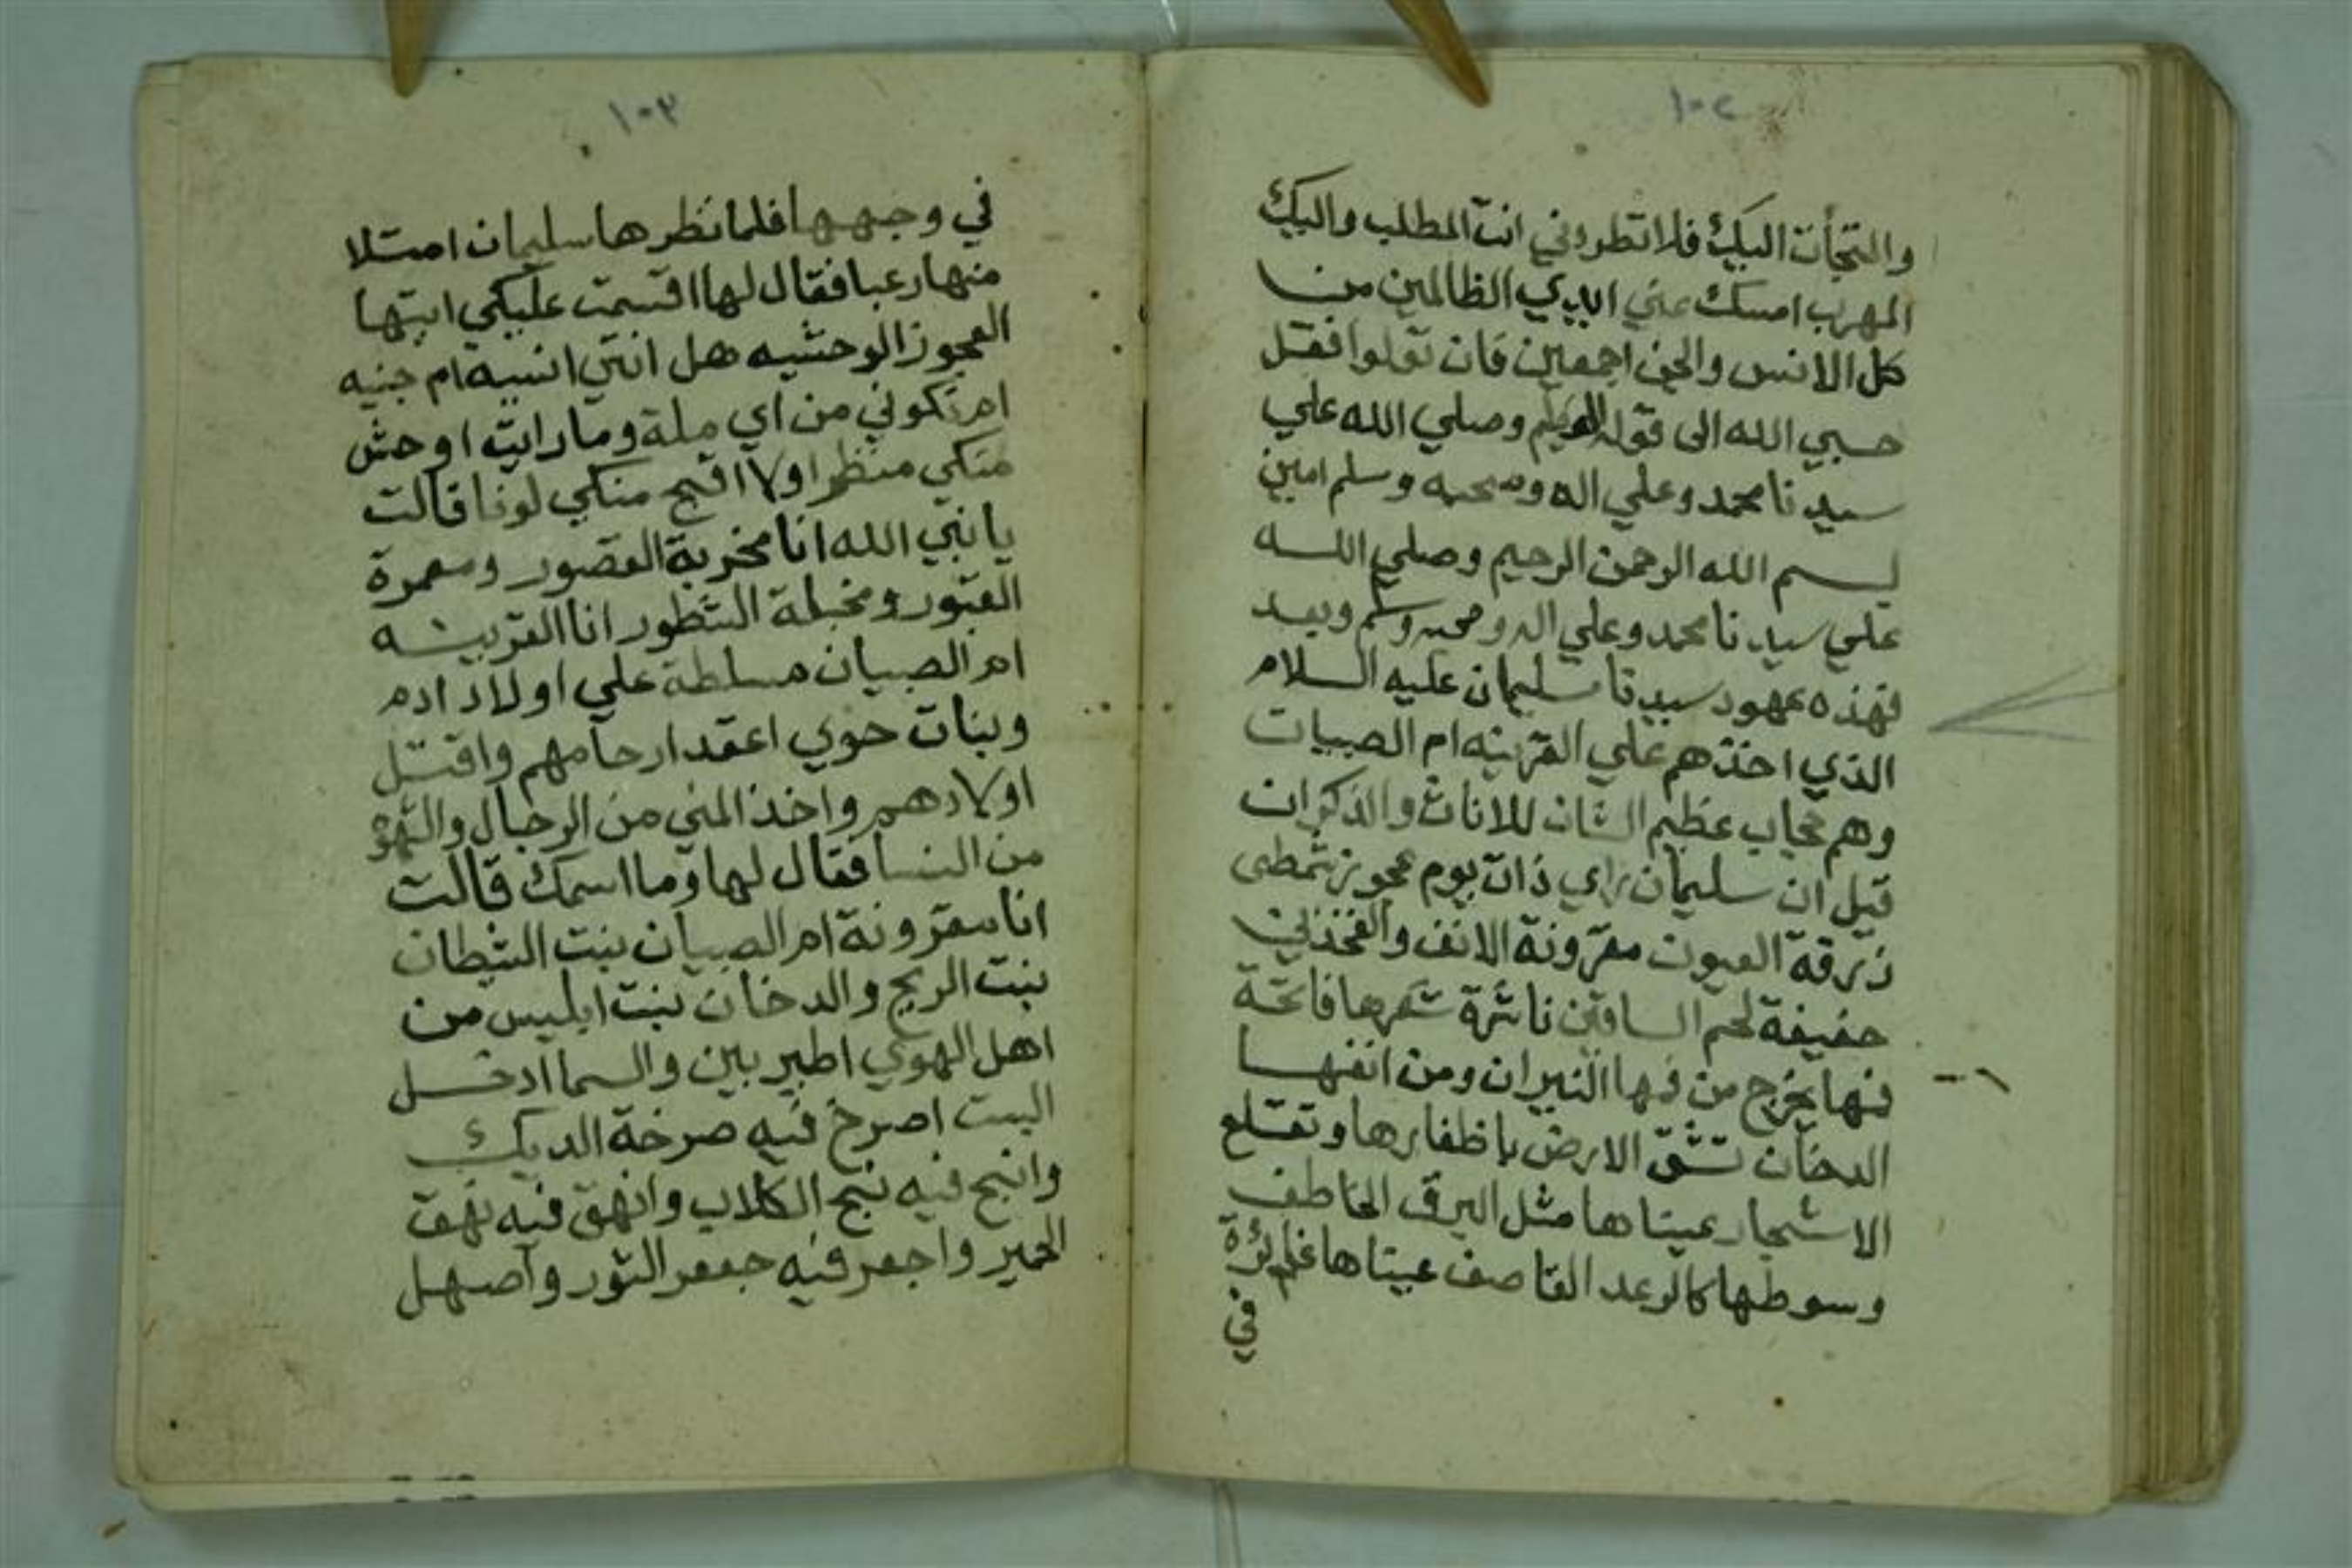 ١٠٢
والتجأت اليك فلا تطردني انت المطلب واليك
المهرب امسك عني ايدي الظالمين من
كل الانس والجن اجمعين فان تولوا فقل
حسبي الله الى قوله العظيم وصلي الله علي
سيدنا محمد وعلي اله وصحبه وسلم امين
بسم الله الرحمن الرحيم وصلي الله
علي سيدنا محمد وعلي اله وصحبه وسلم وبعد
فهذه عهود سيدنا سليمان عليه السلام
الذي اخذهم علي القرينه ام الصبيات
وهم حجاب عظيم الشان للاناث والذكران
قيل ان سليمان راي ذات يوم عجوز شمطى
زرقة العيون مقرونة الانف والفخذين
خفيفة لحم الساقين ناثرة شعرها فاتحة
فمها يخرج من فمها النيران ومن انفها
الدخان تشق الارض باظفارها وتقلع
الاشجار عيناها مثل البرق الخاطف
وسوطها كالرعد القاصف عيناها
في
١٠٣
في وجهها فلما نظرها سليمان امتلا
منها رعبا فقال لها اقسمت عليكي ايتها
العجوز الوحشيه هل انتي انسيه ام جنيه
ام تكوني من اي ملة وما رايت اوحش
منكي منظرا ولا اقبح منكي لونا قالت
يا نبي الله انا مخربة القصور ومعمرة
القبور ومخبلة الشطور انا القرينه
ام الصبيان مسلطة علي اولاد ادم
وبنات حوي اعقد ارحامهم واقتل
اولادهم واخذ المني من الرجال
من النسا فقال لها وما اسمك قالت
انا مقرونة ام الصبيان بنت الشطان
بنت الريح والدخان بنت ابليس من
اهل الهوي اطير بين والسما ادخل
البيت اصرخ فيه صرخة الديك
وانبح فيه نبح الكلاب وانهق فيه نهق
الحمير واجعر فيه جعر الثور واصهل